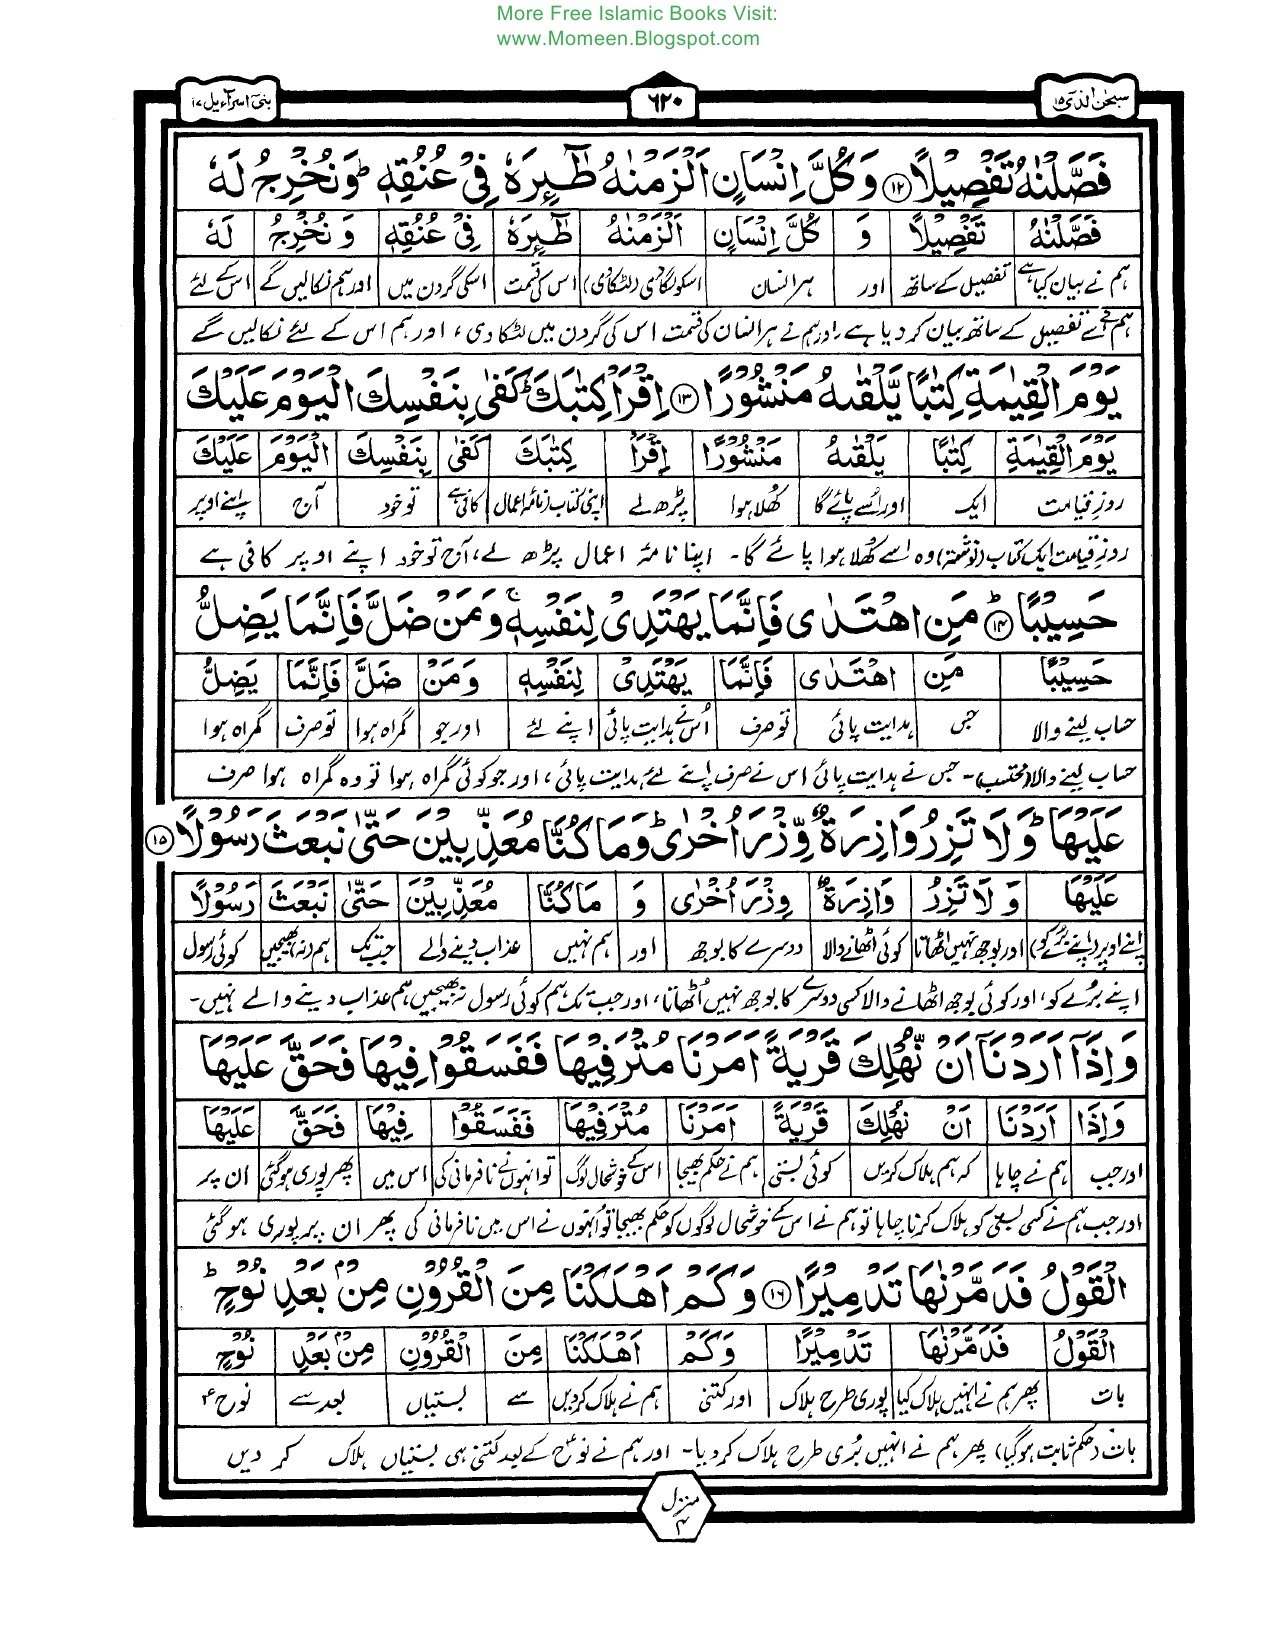 More Free Islamic Books Visit:
www.Momeen.Blogspot.com
سبحٰن الذی ۱۵
۶۲۰
بنی اسرآءیل ۱۷
فَصَّلْنٰهُ تَفْصِیْلًا ۱۲ وَ كُلَّ اِنْسَانٍ اَلْزَمْنٰهُ طٰٓئِرَهٗ فِیْ عُنُقِهٖ ؕ وَ نُخْرِجُ لَهٗ
فَصَّلْنٰهُ تَفْصِیْلًا وَ كُلَّ اِنْسَانٍ اَلْزَمْنٰهُ طٰٓئِرَهٗ فِیْ عُنُقِهٖ وَ نُخْرِجُ لَهٗ
ہم نے بیان کیا ہے تفصیل کے ساتھ اور ہر انسان اسکو لگا دی (لٹکا دی) اس کی قسمت اسکی گردن میں اور ہم نکالیں گے اس کے لئے
ہم نے اسے تفصیل کے ساتھ بیان کر دیا ہے، اور ہم نے ہر انسان کی قسمت اس کی گردن میں لٹکا دی، اور ہم اس کے لئے نکالیں گے
یَوْمَ الْقِیٰمَةِ كِتٰبًا یَّلْقٰىهُ مَنْشُوْرًا ۱۳ اِقْرَاْ كِتٰبَكَ ؕ كَفٰی بِنَفْسِكَ الْیَوْمَ عَلَیْكَ
یَوْمَ الْقِیٰمَةِ كِتٰبًا یَلْقٰىهُ مَنْشُوْرًا اِقْرَاْ كِتٰبَكَ كَفٰی بِنَفْسِكَ الْیَوْمَ عَلَیْكَ
روزِ قیامت ایک اور اُسے پائے گا کھُلا ہوا پڑھ لے اپنی کتاب (نامۂ اعمال) کافی ہے تو خود آج اپنے اوپر
روزِ قیامت ایک کتاب (نوشتہ) وہ اسے کھُلا ہوا پائے گا۔ اپنا نامۂ اعمال پڑھ لے، آج تو خود اپنے اوپر کافی ہے
حَسِیْبًا ؕ ۱۴ مَنِ اهْتَدٰی فَاِنَّمَا یَهْتَدِیْ لِنَفْسِهٖ ۚ وَ مَنْ ضَلَّ فَاِنَّمَا یَضِلُّ
حَسِیْبًا مَنِ اهْتَدٰی فَاِنَّمَا یَهْتَدِیْ لِنَفْسِهٖ وَ مَنْ ضَلَّ فَاِنَّمَا یَضِلُّ
حساب لینے والا جس ہدایت پائی تو صرف اُس نے ہدایت پائی اپنے لئے اور جو گمراہ ہوا تو صرف گمراہ ہوا
حساب لینے والا (محتسب)۔ جس نے ہدایت پائی اس نے صرف اپنے لئے ہدایت پائی، اور جو کوئی گمراہ ہوا تو وہ گمراہ ہوا صرف
عَلَیْهَا ؕ وَ لَا تَزِرُ وَازِرَةٌ وِّزْرَ اُخْرٰی ؕ وَ مَا كُنَّا مُعَذِّبِیْنَ حَتّٰی نَبْعَثَ رَسُوْلًا ۱۵
عَلَیْهَا وَ لَا تَزِرُ وَازِرَةٌ وِزْرَ اُخْرٰی وَ مَا كُنَّا مُعَذِّبِیْنَ حَتّٰی نَبْعَثَ رَسُوْلًا
اپنے اوپر (اپنے بُرے کو) اور بوجھ نہیں اٹھاتا کوئی اٹھانے والا دوسرے کا بوجھ اور ہم نہیں عذاب دینے والے جب تک ہم (نہ) بھیجیں کوئی رسول
اپنے بُرے کو، اور کوئی بوجھ اٹھانے والا کسی دوسرے کا بوجھ نہیں اُٹھاتا، اور جب تک ہم کوئی رسول نہ بھیجیں ہم عذاب دینے والے نہیں۔
وَ اِذَاۤ اَرَدْنَاۤ اَنْ نُّهْلِكَ قَرْیَةً اَمَرْنَا مُتْرَفِیْهَا فَفَسَقُوْا فِیْهَا فَحَقَّ عَلَیْهَا
وَ اِذَا اَرَدْنَا اَنْ نُهْلِكَ قَرْیَةً اَمَرْنَا مُتْرَفِیْهَا فَفَسَقُوْا فِیْهَا فَحَقَّ عَلَیْهَا
اور جب ہم نے چاہا کہ ہم ہلاک کریں کوئی بستی ہم نے حکم بھیجا اس کے خوشحال لوگ تو انہوں نے نافرمانی کی اس میں پھر پوری ہو گئی ان پر
اور جب ہم نے کسی بستی کو ہلاک کرنا چاہا تو ہم نے اس کے خوشحال لوگوں کو حکم بھیجا تو اُنہوں نے اس میں نافرمانی کی پھر ان پر پوری ہو گئی
الْقَوْلُ فَدَمَّرْنٰهَا تَدْمِیْرًا ۱۶ وَ كَمْ اَهْلَكْنَا مِنَ الْقُرُوْنِ مِنْۢ بَعْدِ نُوْحٍ ؕ
الْقَوْلُ فَدَمَّرْنٰهَا تَدْمِیْرًا وَ كَمْ اَهْلَكْنَا مِنَ الْقُرُوْنِ مِنْۢ بَعْدِ نُوْحٍ
بات پھر ہم نے انہیں ہلاک کیا پوری طرح ہلاک اور کتنی ہم نے ہلاک کر دیں سے بستیاں بعد سے نوح
بات (حکم ثابت ہو گیا) پھر ہم نے انہیں بُری طرح ہلاک کر دیا۔ اور ہم نے نوح کے بعد کتنی ہی بستیاں ہلاک کر دیں
منزل
۴